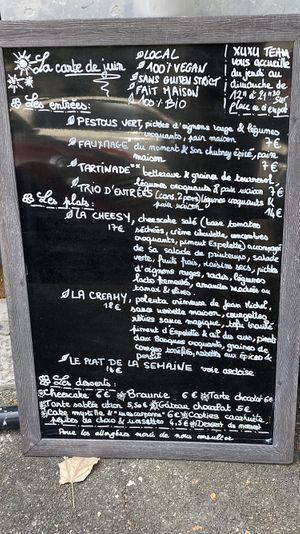 La carte de juin
LOCAL
100% VEGAN
SANS GLUTEN STRICT
FAIT MAISON
100% BIO
XUXU TEAM
vous accueille
du jeudi au
dimanche de
Place
Les entrées:
PESTOUS VERT, pickles d'oignons rouge & légumes
croquants, pain maison 7€
FAUXMAGE du moment & son chutney épicé, pain
maison 7€
TARTINADE** betterave & graines de tournesol,
légumes croquants & pain maison 7€
TRIO D'ENTRÉES (2 pers) légumes croquants &
pain maison 14€
Les plats:
LA CHEESY, cheesecake salé (base tomates
17€ séchées, crème ciboulette, concombres
croquants, piment Espelette) accompagné
de sa salade de printemps, salade
verte, fruits frais, raisins secs, pickles
d'oignons rouges, radis, légumes
lacto fermentés, amandes
tamari &
LA CREAMY, polenta crémeuse de Jean Michel,
18€ sauce maison, courgettes
sauce magique, tofu brouillé
piment d'Espelette & ail des ours, pain
croquants, graines de
courges torréfiées, noisettes aux épices &
persil
LE PLAT DE LA SEMAINE voir ardoise
16€
Les desserts:
Cheesecake 6€ Brownie 6€ Tarte chocolat 6€
Tarte sablée citron 5,50€ Gâteau chocolat 5€
Cake myrtille & "mascarpone" 6€ Cookies cacahuète
pépites de choco & noisettes 4,5€ Dessert du moment
Pour les allergènes merci de nous consulter